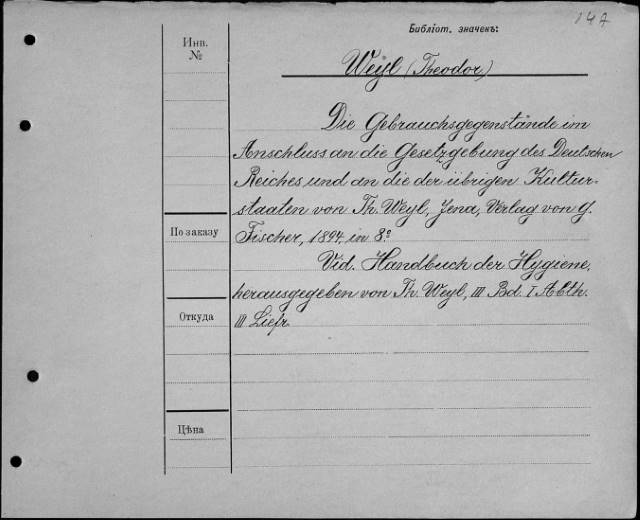 147
Библіот. значекъ:
Инв.
№
Weyl (Theodor)
Die Gebrauchsgegenstände im
Anschluss an die Gesetzgebung des Deutschen
Reiches und an die der übrigen Kultur-
staaten von Th. Weyl, Jena, Verlag von G.
По заказу
Fischer, 1894, in 8º
Vid. Handbuch der Hygiene,
herausgegeben von Th. Weyl, III Bd. I Abth.
Откуда
III Liefr.
Цѣна